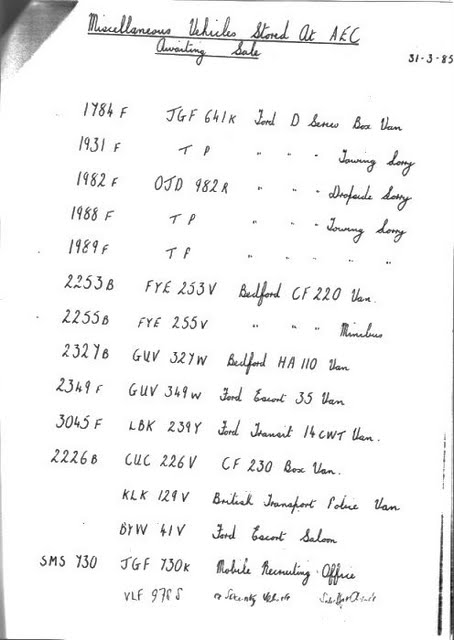 Miscellaneous Vehicles Stored At AEC
Awaiting Sale
31-3-85
1784 F JGF 641K Ford D Series Box Van
1931 F T P " " " Towing Lorry
1982 F OJD 982R " " " Dropside Lorry
1988 F T P " " " Towing Lorry
1989 F T P " " " " "
2253B FYE 253V Bedford CF 220 Van.
2255B FYE 255V " " " Minibus
2327B GUV 327W Bedford HA 110 Van
2349 F GUV 349W Ford Escort 35 Van
3045 F LBK 239Y Ford Transit 14CWT Van.
2226B CUC 226V CF 230 Box Van.
KLK 129V British Transport Police Van
BYW 41V Ford Escort Saloon
SMS 730 JGF 730K Mobile Recruiting Office
VLF 97 S Security Vehicle